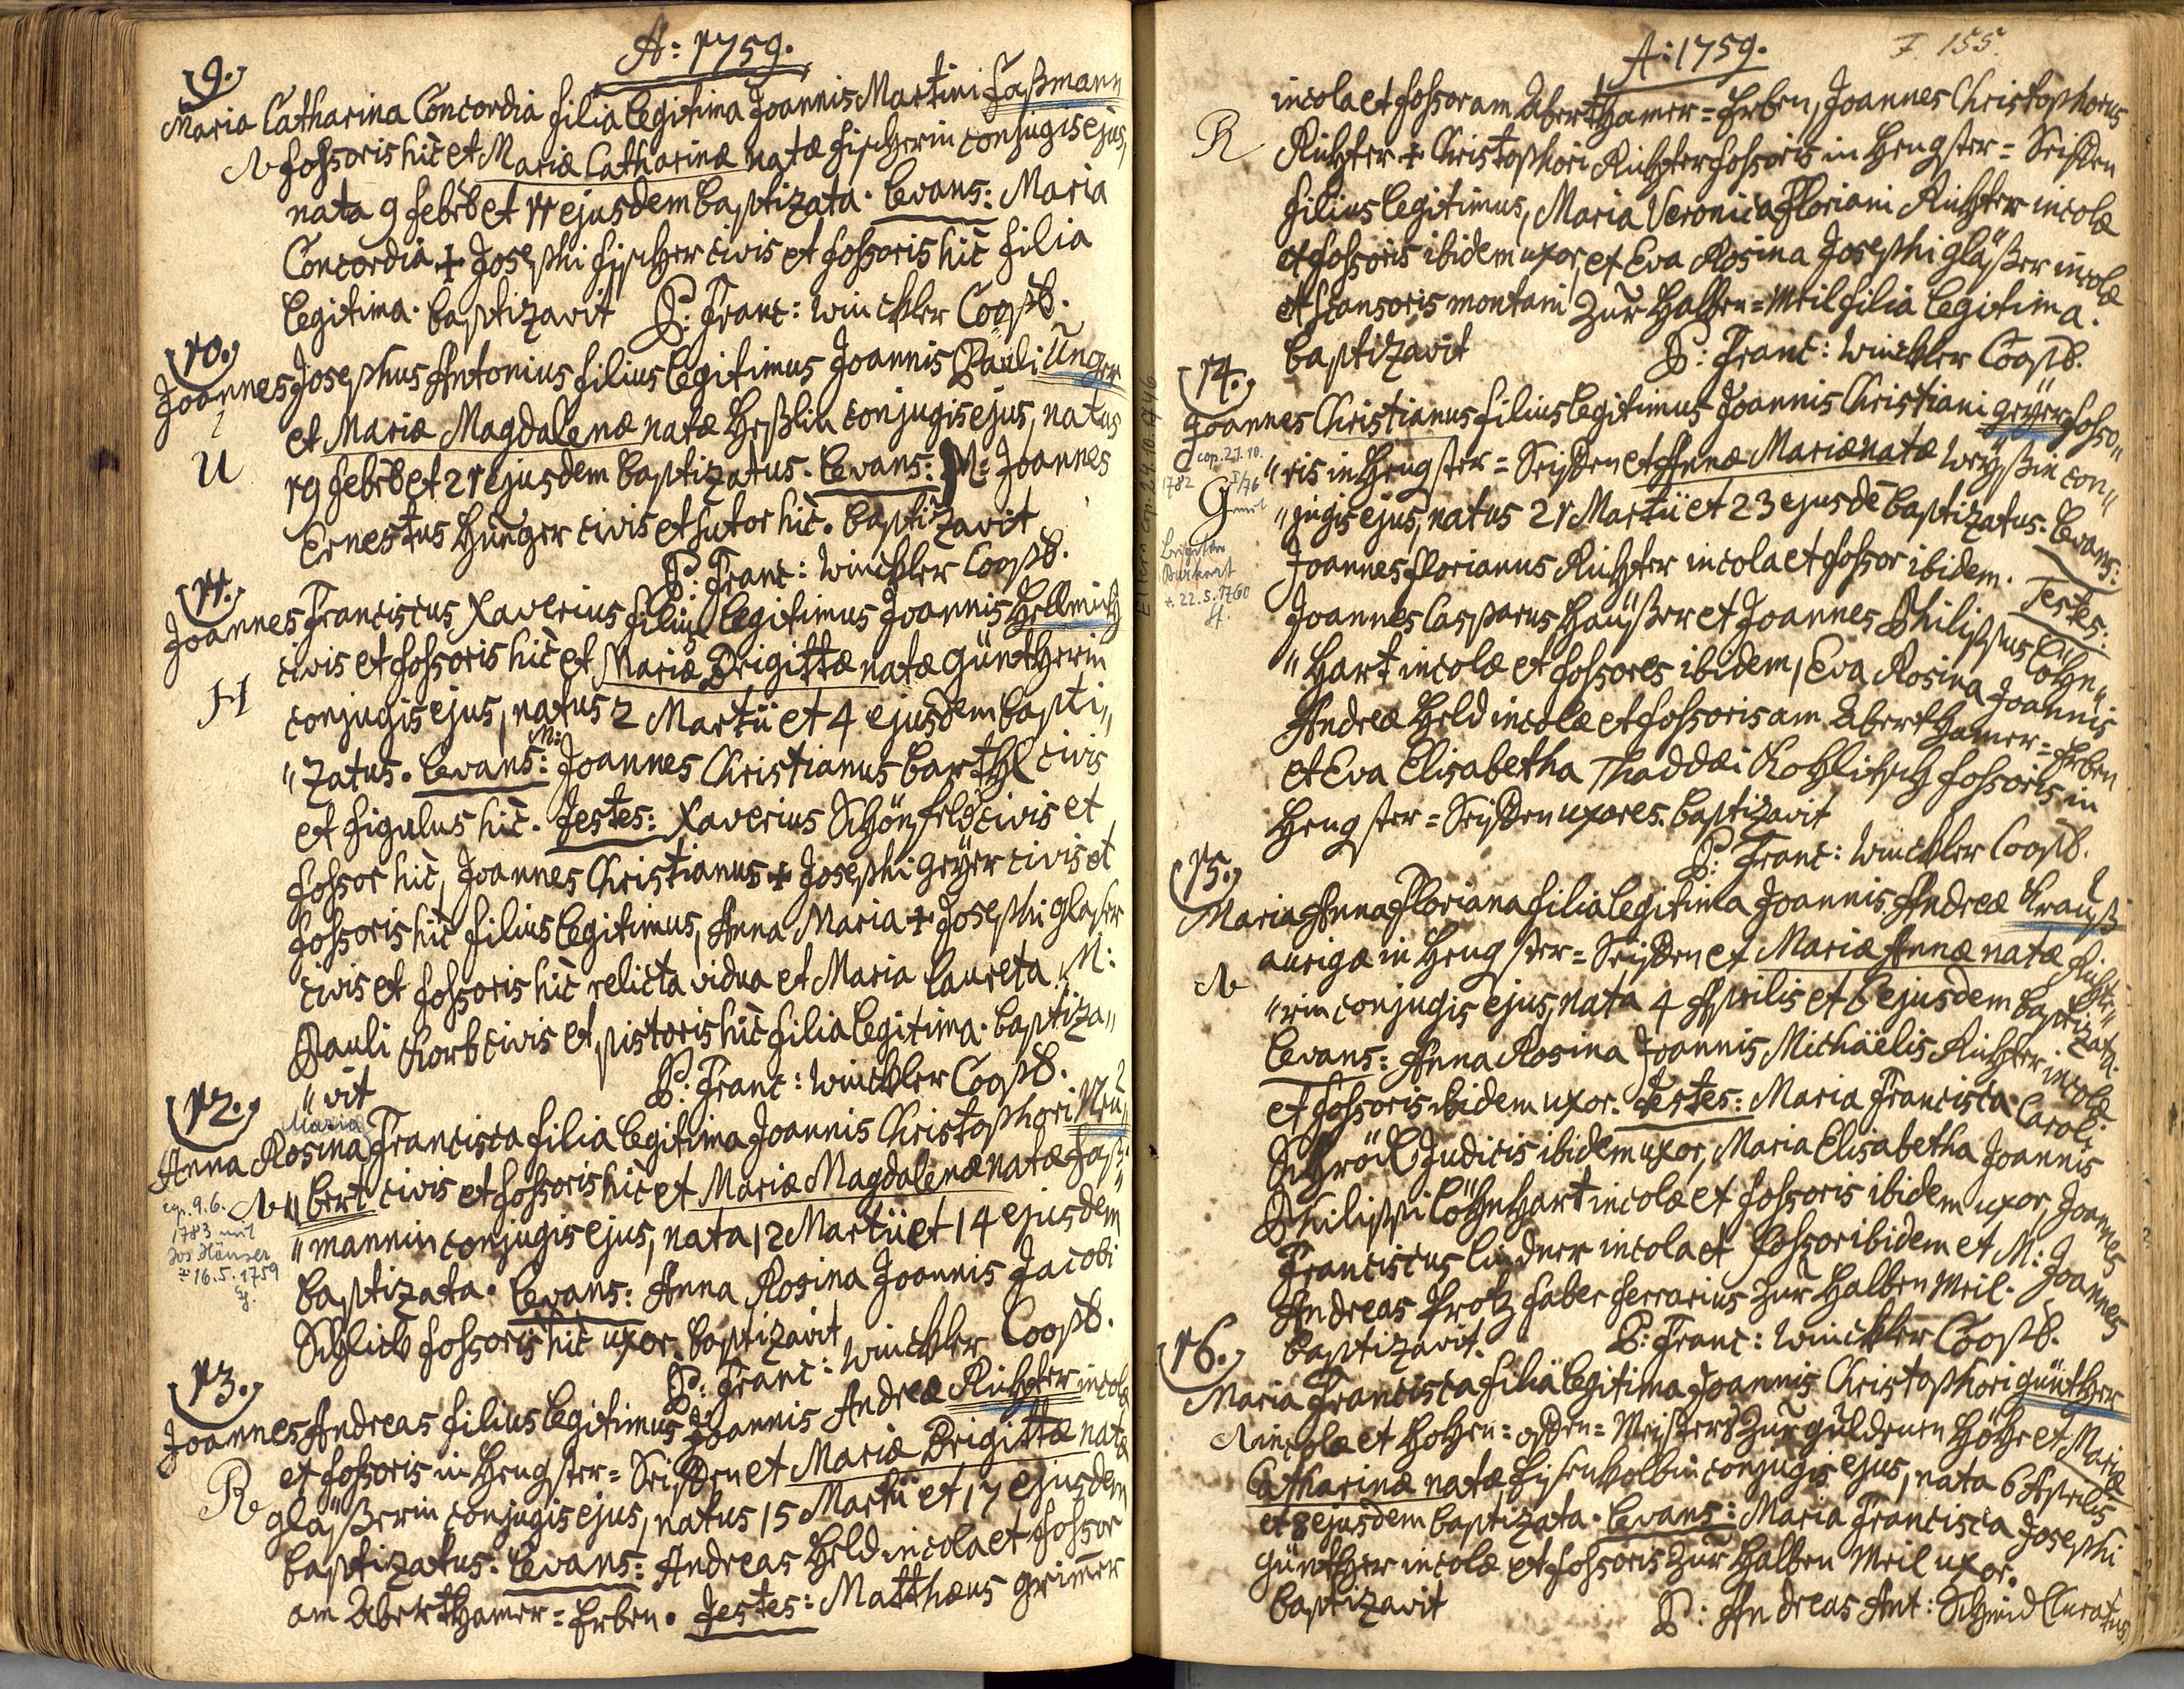 A: 1759.
9.
Maria Catharina Concordia filia legitima Joannis Martini Faßmann
fossoris hic et Mariæ Catharinæ natæ Fischerin conjugis ejus,
nata 9 Febrb et 11 ejusdem baptizata. Levans: Maria
Concordia + Josephi Fischer civis et fossoris hic filia
legitima. baptizavit P: Franc: Winckler Coopb.
10.
Joannes Josephus Antonius filius legitimus Joannis Pauli Unger
et Mariæ Magdalenæ natæ Heßlin conjugis ejus, natus
U
19 Febrb et 21 ejusdem baptizatus. Levans: M: Joannes
Ernestus Hunger civis et sutor hic. baptizavit
P: Franc: Winckler Coopb.
11.
Joannes Franciscus Xaverius filius legitimus Joannis Hellmich
civis et fossoris hic et Mariæ Brigittæ natæ Güntherin
H
conjugis ejus, natus 2 Martii et 4 ejusdem bapti"
"zatus. Levans: M: Joannes Christianus Barthl civis
et figulus hic. Testes: Xaverius Schönfeld civis et
fossor hic, Joannes Christianus + Josephi Geÿer civis et
fossoris hic filius legitimus, Anna Maria + Josephi Glaser
civis et fossoris hic relicta vidua et Maria Laureta M:
Pauli Korb civis et pistoris hic filia legitima. baptiza"
"vit P: Franc: Winckler Coopb.
12.
Maria
Anna Rosina Francisca filia legitima Joannis Christophori Neu"
"bert civis et fossoris hic et Mariæ Magdalenæ natæ Faß"
cop. 9.6.
1783 mit
Jos Häuser
* 16.5.1759
"mannin conjugis ejus, nata 12 Martii et 14 ejusdem
baptizata. Levans: Anna Rosina Joannis Jacobi
Schlick fossoris hic uxor. baptizavit
P: Franc: Winckler Coopb.
13.
Joannes Andreas filius legitimus Joannis Andreæ Richter incolæ
et fossoris in Hengster=Seiffen et Mariæ Brigittæ natæ
R
Gläßerin conjugis ejus, natus 15 Martii et 17 ejusdem
baptizatus. Levans: Andreas Held incola et fossor
am Aberthamer=Erben. Testes: Matthæus Grimer
A: 1759.
F. 155.
incola et fossor am Aberthamer=Erben, Joannes Christophorus
R
Richter + Christophori Richter fossoris in Hengster=Seiffen
filius legitimus, Maria Veronica Floriani Richter incolæ
et fossoris ibidem uxor, et Eva Rosina Josephi Gläßer incolæ
et scansoris montani Zur Halben=Meil filia legitima.
baptizavit P: Franc: Winckler Coopb.
14.
Joannes Christianus filius legitimus Joannis Christiani Geÿer fosso"
"ris in Hengster=Seiffen et Annæ Mariæ natæ Weÿßin con"
cop. 27.10.
1782
G
mit
Brigitta
* 22.5.1760
"jugis ejus, natus 21 Martii et 23 ejusdē baptizatus. Levans:
Joannes Florianus Richter incola et fossor ibidem. Testes:
Joannes Casparus Häußer et Joannes Philippus Löhn"
"hart incolæ et fossores ibidem, Eva Rosina Joannis
Andreæ Held incolæ et fossoris am Aberthamer=Erben
et Eva Elisabetha Thaddæi Kohlitsch fossoris in
Hengster=Seiffen uxores. baptizavit
P: Franc: Winckler Coopb.
15.
Maria Anna Floriana filia legitima Joannis Andreæ Krauß
aurigæ in Hengster=Seiffen et Mariæ Annæ natæ Richte"
"rin conjugis ejus, nata 4 Aprilis et 6 ejusdem baptizata.
Levans: Anna Rosina Joannis Michäelis Richter incolæ
et fossoris ibidem uxor. Testes: Maria Francisca Caroli
Schrödl Judicis ibidem uxor, Maria Elisabetha Joannis
Philippi Löhnhart incolæ et fossoris ibidem uxor, Joannes
Franciscus Lindner incola et fossor ibidem et M: Joannes
Andreas Protz faber ferrarius Zur Halben Meil.
baptizavit. P: Franc: Winckler Coopb.
16.
Maria Francisca filia legitima Joannis Christophori Günther
incolæ et Hohen=Ofen=Meisters Zur Güldenen Höhe et Mariæ
Catharinæ natæ Eisenkolbin conjugis ejus, nata 6 Aprilis
et 8 ejusdem baptizata. Levans: Maria Francisca Josephi
Günther incolæ et fossoris Zur Halben Meil uxor.
baptizavit P: Andreas Ant: Schmid Curatus
Eltern cop. 24.10.1746